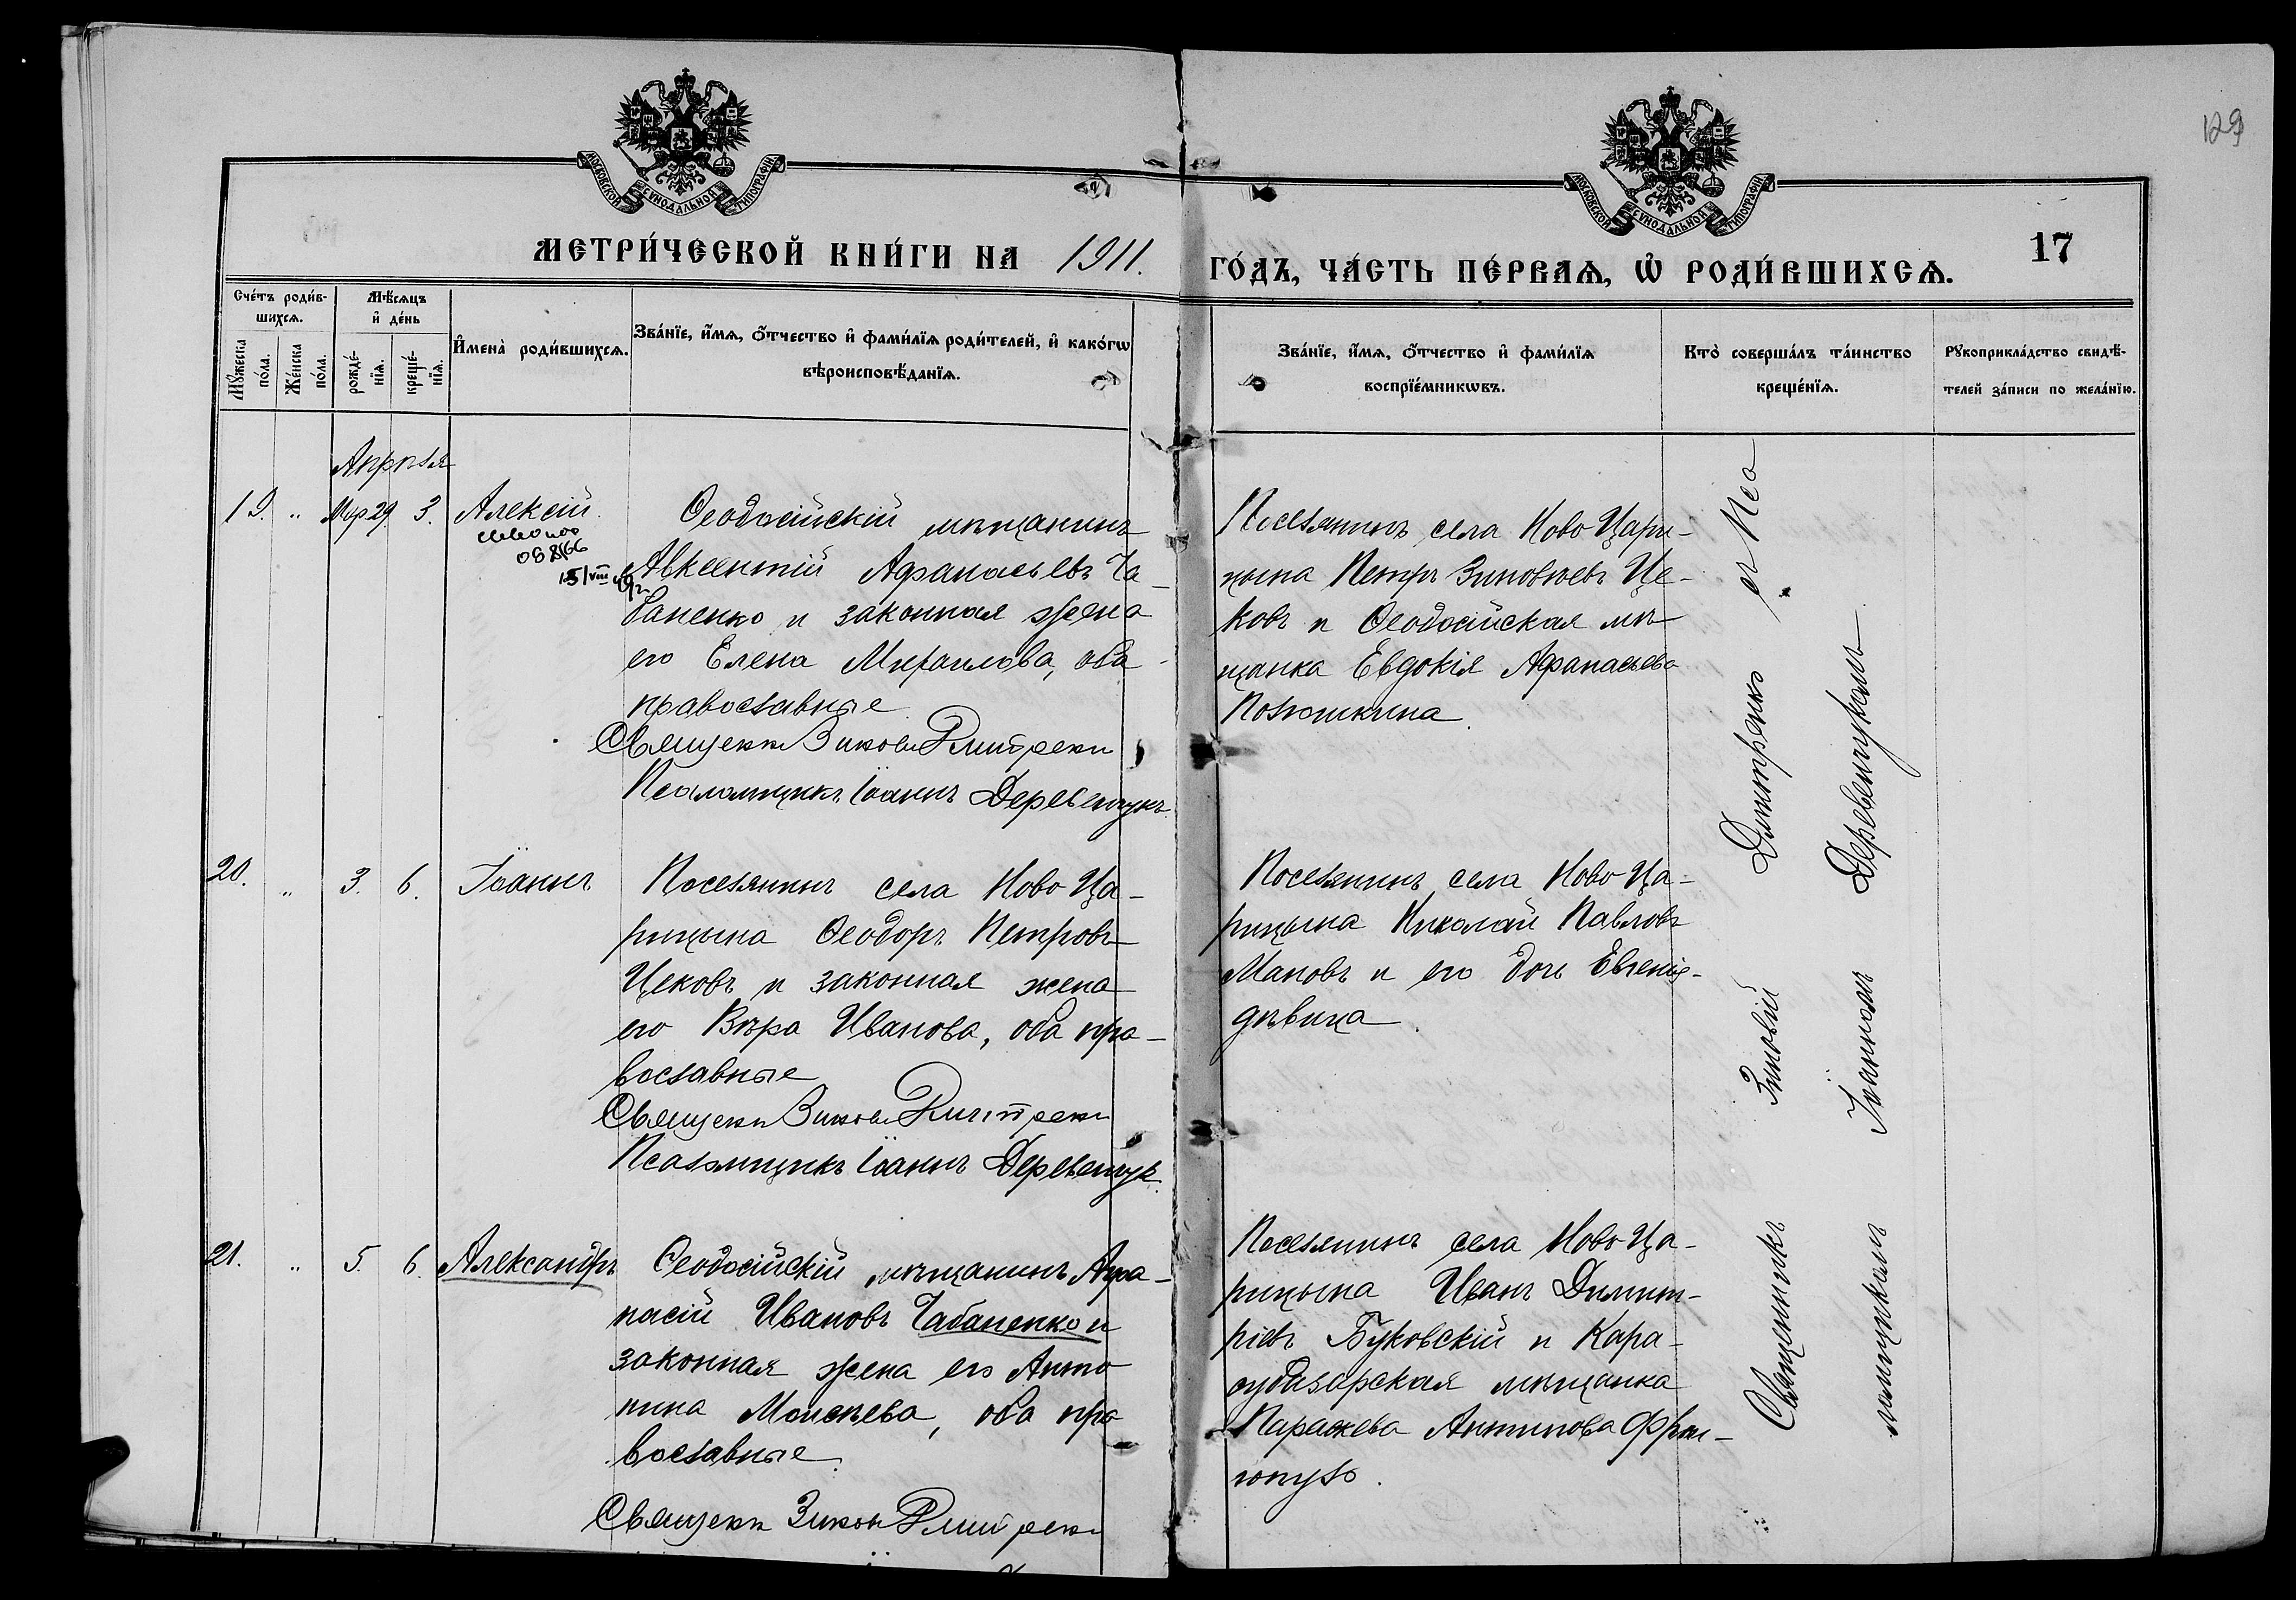 129
МОСКОВСКОЙ СѴНОДАЛЬНОЙ ТИПОГРАФІИ
МОСКОВСКОЙ СѴНОДАЛЬНОЙ ТИПОГРАФІИ
МЕТРИ́ЧЕСКОЙ КНИ́ГИ НА 1911.
ГО́ДЪ, ЧА́СТЬ ПЕ́РВАѦ, Ѽ РОДИ́ВШИХСѦ.
17
Сче́тъ роди́в-
шихсѧ.
Мꙋ́жеска по́ла.
Же́нска по́ла.
Мѣ́сѧцъ
и҆ де́нь
рожде́-
нїѧ.
креще́-
нїѧ.
И҆мена̀ роди́вшихсѧ.
Зва́нїе, и҆́мѧ, ѻ҆́тчество и҆ фами́лїѧ роди́телей, и҆ како́гѡ
вѣроисповѣ́данїѧ.
Зва́нїе, и҆́мѧ, ѻ҆́тчество и҆ фами́лїѧ
воспрїе́мникѡвъ.
Кто̀ соверша́лъ та́инство
креще́нїѧ.
Рꙋкоприкла́дство свидѣ́-
телей за́писи по жела́нїю.
Апрѣля
19. " Мар 29. 3. Алексій
15/VIII
Ѳеодосійскій мѣщанинъ
Авксентій Афанасьевъ Ча-
баненко и законная жена
его Елена Михаилова, оба
православные
Священни Зинов Дмитренко
Псаломщикъ Іоаннъ Деревенчукъ
Поселянинъ села Ново Цари-
цына Петръ Зиновьевъ Це-
ковъ и Ѳеодосійская мѣ-
щанка Евдокія Афанасьева
Полюшкина
20. " 3. 6. Іоаннъ
Поселянинъ села Ново Ца-
рицына Ѳеодоръ Петровъ
Цековъ и законная жена
его Вѣра Иванова, оба пра-
вославные
Священн Зинов Дмитренко
Псаломщикъ Іоаннъ Деревенчук
Поселянинъ села Ново Ца-
рицына Николай Павловъ
Мановъ и его дочь Евгенія-
дѣвица
21. " 5. 6. Александръ
Ѳеодосійскій мѣщанинъ Афа-
насій Ивановъ Чабаненко и
законная жена его Анто
нина Моисѣева, оба пра
вославные
Священн Зинов Дмитренко
Поселянинъ села Ново Ца-
рицына Иванъ Димит-
ріевъ Буковскій и Кара-
субазарская мѣщанка
Параскева Антипова
Священникъ Зиновій Дмитренко съ Пса
ломщикомъ Іоанномъ Деревенчукомъ